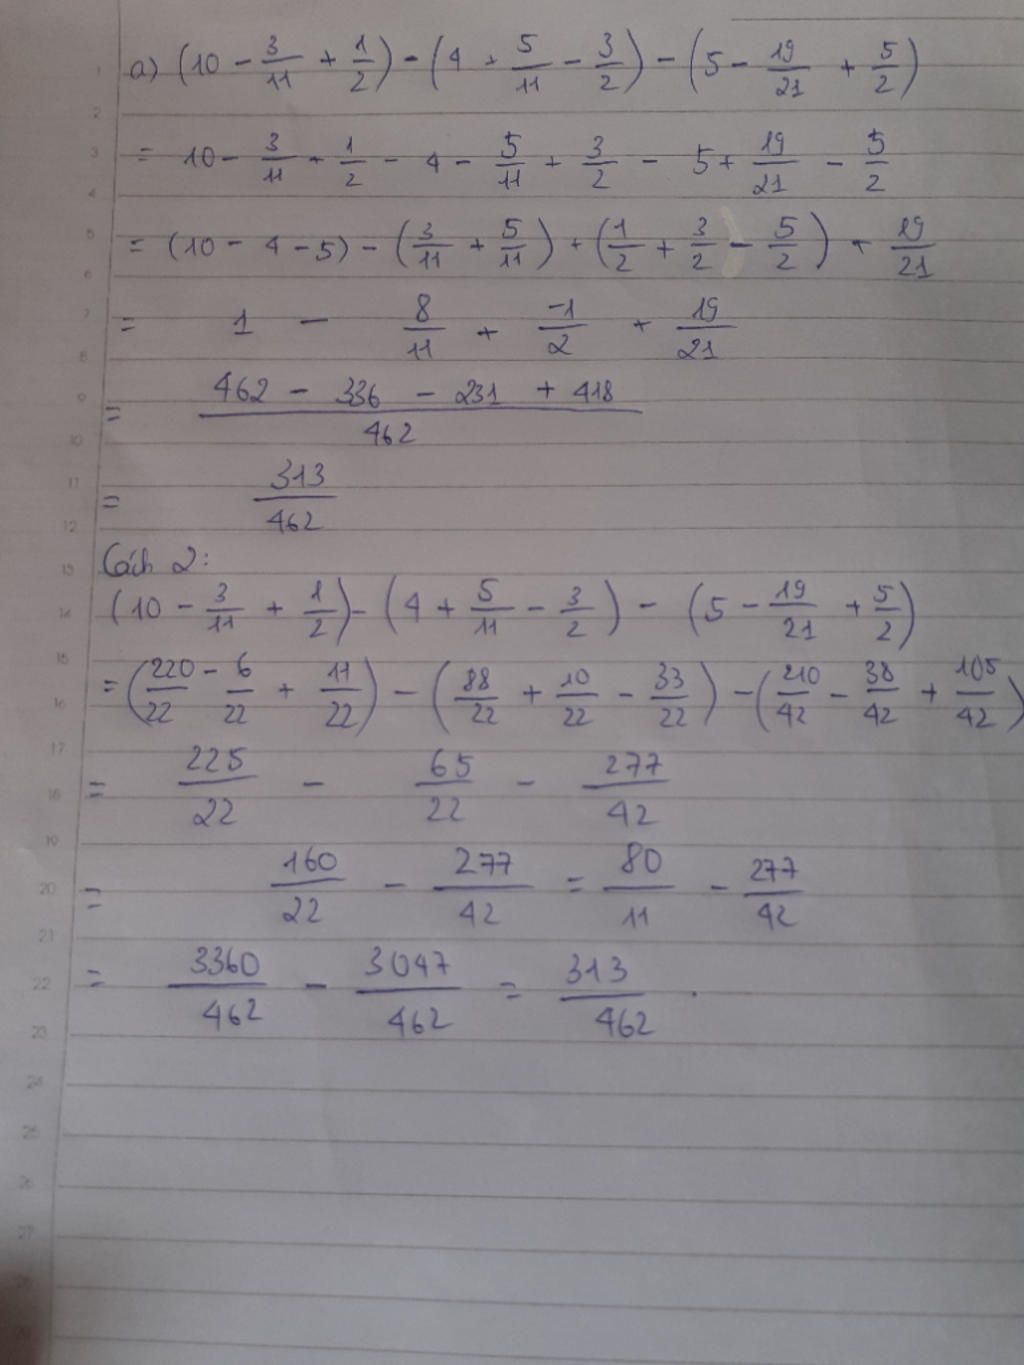 a) (10 - 3/11 + 1/2) - (4 + 5/11 - 3/2) - (5 - 19/21 + 5/2)
= 10 - 3/11 + 1/2 - 4 - 5/11 + 3/2 - 5 + 19/21 - 5/2
= (10 - 4 - 5) - (3/11 + 5/11) + (1/2 + 3/2 - 5/2) + 19/21
= 1 - 8/11 + -1/2 + 19/21
= (462 - 336 - 231 + 418)/462
= 313/462
Cách 2:
(10 - 3/11 + 1/2) - (4 + 5/11 - 3/2) - (5 - 19/21 + 5/2)
= (220/22 - 6/22 + 11/22) - (88/22 + 10/22 - 33/22) - (210/42 - 38/42 + 105/42)
= 225/22 - 65/22 - 277/42
= 160/22 - 277/42 = 80/11 - 277/42
= 3360/462 - 3047/462 = 313/462 .